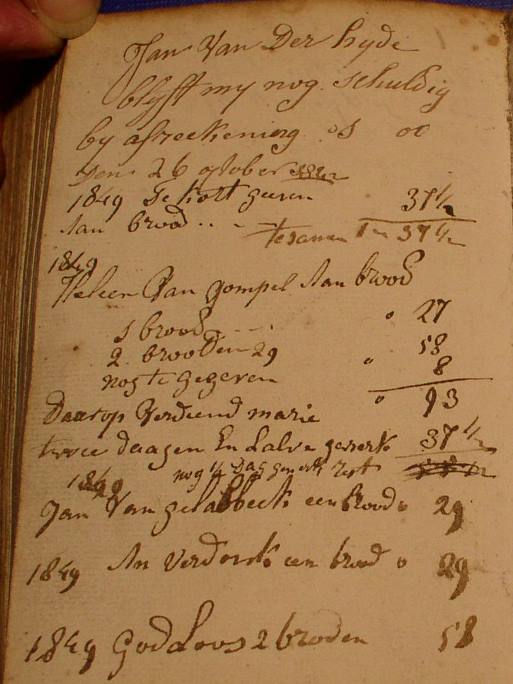 Jan Van Der hyde
blyft my nog schuldig
by afreekening 0S 00
den 26 october
1849 te kort geven 37½
Aan brood.. - tesamen 37½
1849
Heleen Van gompel Aan brood
1 brood - - - 0 27
2 brooden 29 0 58
nog te gegeven 8
Daarop Verdiend marie 0 93
twee daagen En halve gewerk 37½
nog ½ dag gewerk rest
1849
Jan Van gelabbeek een brood 0 29
1849 An Verdonk een brood 0 29
1849 godloos 2 broden 58